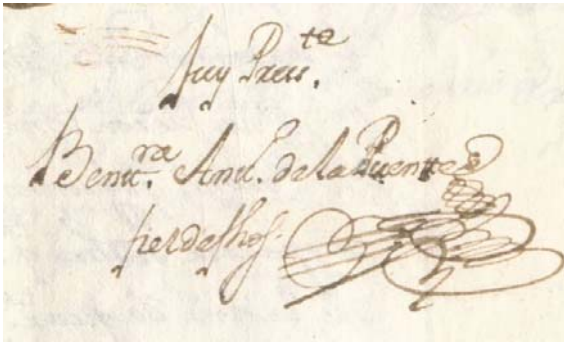 fuy Press.te
Bent.ra Ant. de la Puente
fiel de fhos.